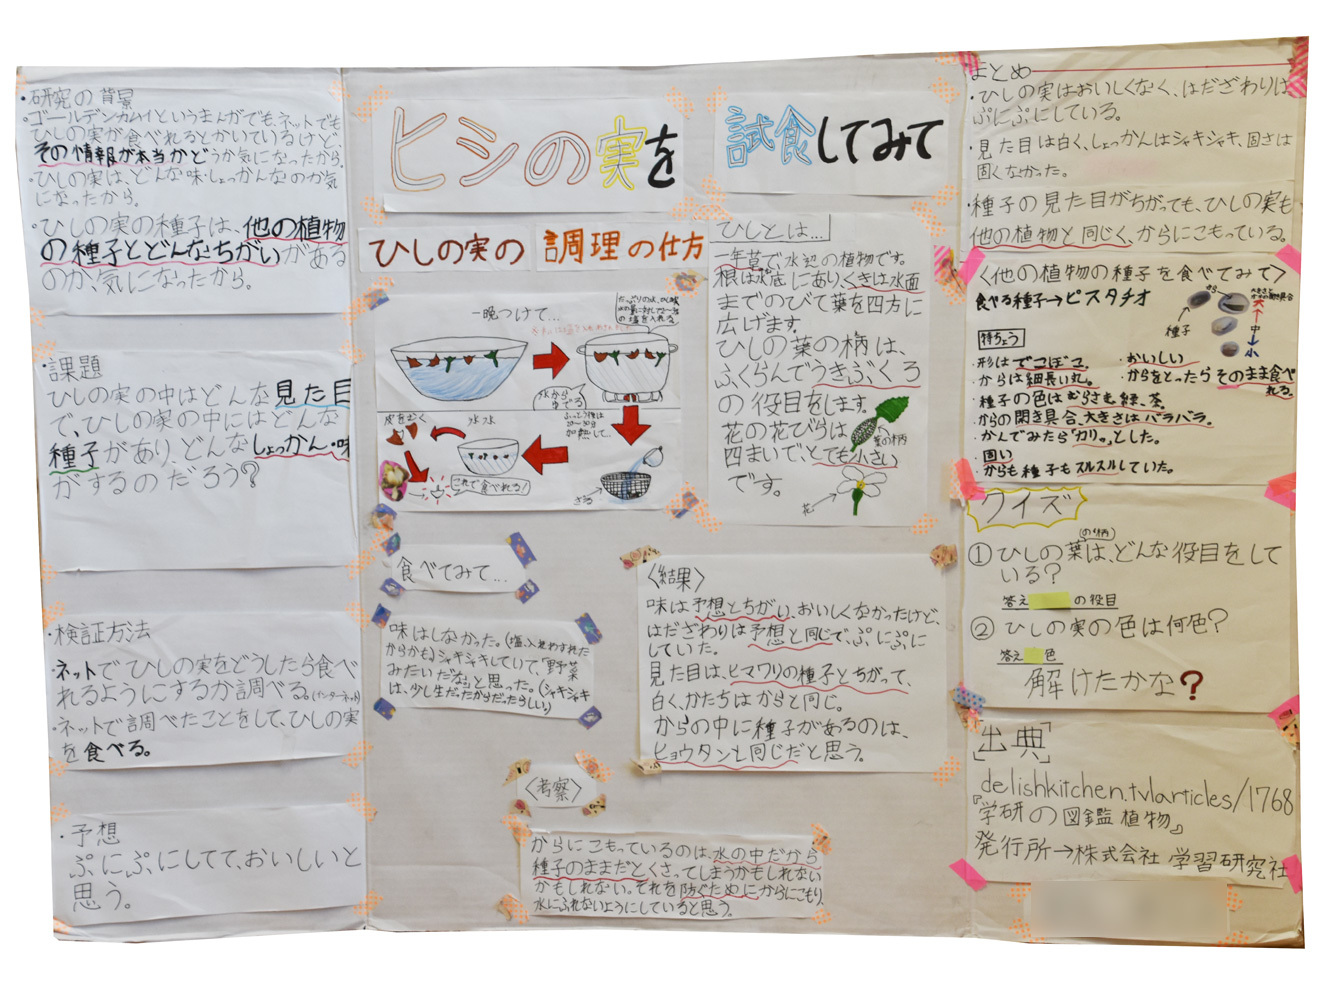 ・研究の背景
・ゴールデンカムイというまんがでも、ネットでも
ひしの実が食べれるとかいているけど、
その情報が本当かどうか気になったから。
・ひしの実は、どんな味・しょっかんなのか気
になったから。
・ひしの実の種子は、他の植物
の種子とどんなちがいがある
のか、気になったから。
・課題
ひしの実の中はどんな見た目
で、ひしの実の中にはどんな
種子があり、どんなしょっかん・味
がするのだろう?
・検証方法
・ネットでひしの実をどうしたら食べ
れるようにするか調べる。(インターネット)
・ネットで調べたことをして、ひしの実
を食べる。
・予想
ぷにぷにしてて、おいしいと
思う。
ヒシの実を
試食してみて
ひしの実の
調理の仕方
一晩つけて…
水から
ゆでる
ふっとう後は
20〜30分
加熱して…
ざる
水水
皮をむく
これで食べれる!
ひしとは…
一年草で、水辺の植物です。
根は水底にあり、くきは水面
までのびて葉を四方に
広げます。
ひしの葉の柄は、
ふくらんでうきぶくろ
の役目をします。
花の花びらは
四まいで、とても小さい
です。
葉の柄
花
食べてみて…
味はしなかった。(塩、入れわすれた
からかも)シャキシャキしていて、「野菜
みたいだな」と思った。(シャキシャキ
は、少し生だったからだったらしい)
〈結果〉
味は予想とちがい、おいしくなかったけど、
はだざわりは予想と同じで、ぷにぷに
していた。
見た目は、ヒマワリの種子とちがって、
白く、かたちはからと同じ。
からの中に種子があるのは、
ヒョウタンと同じだと思う。
〈考察〉
からにこもっているのは、水の中だから
種子のままだとくさってしまうかもしれない
かもしれない。それを防ぐためにからにこもり、
水にふれないようにしていると思う。
まとめ
・ひしの実はおいしくなく、はだざわりは
ぷにぷにしている。
・見た目は白く、しょっかんはシャキシャキ、固さは
固くなかった。
・種子の見た目がちがっても、ひしの実も
他の植物と同じく、からにこもっている。
〈他の植物の種子を食べてみて〉
食べる種子→ピスタチオ
から
種子
大きさと
からの開き具合
大
中
小
特ちょう
・形はでこぼこ。
・からは細長い丸。
・種子の色はむらさき、緑、茶。
・からの開き具合、大きさはバラバラ。
・かんでみたら「カリッ」とした。
・固い
・からも種子もスルスルしていた。
・おいしい
・からをとったらそのまま食べ
れる。
クイズ
①ひしの葉(の柄)は、どんな役目をして
いる?
答え の役目
②ひしの実の色は何色?
答え 色
解けたかな?
[出典]
delishkitchen.tv/articles/1768
『学研の図鑑 植物』
発行所→株式会社 学習研究社